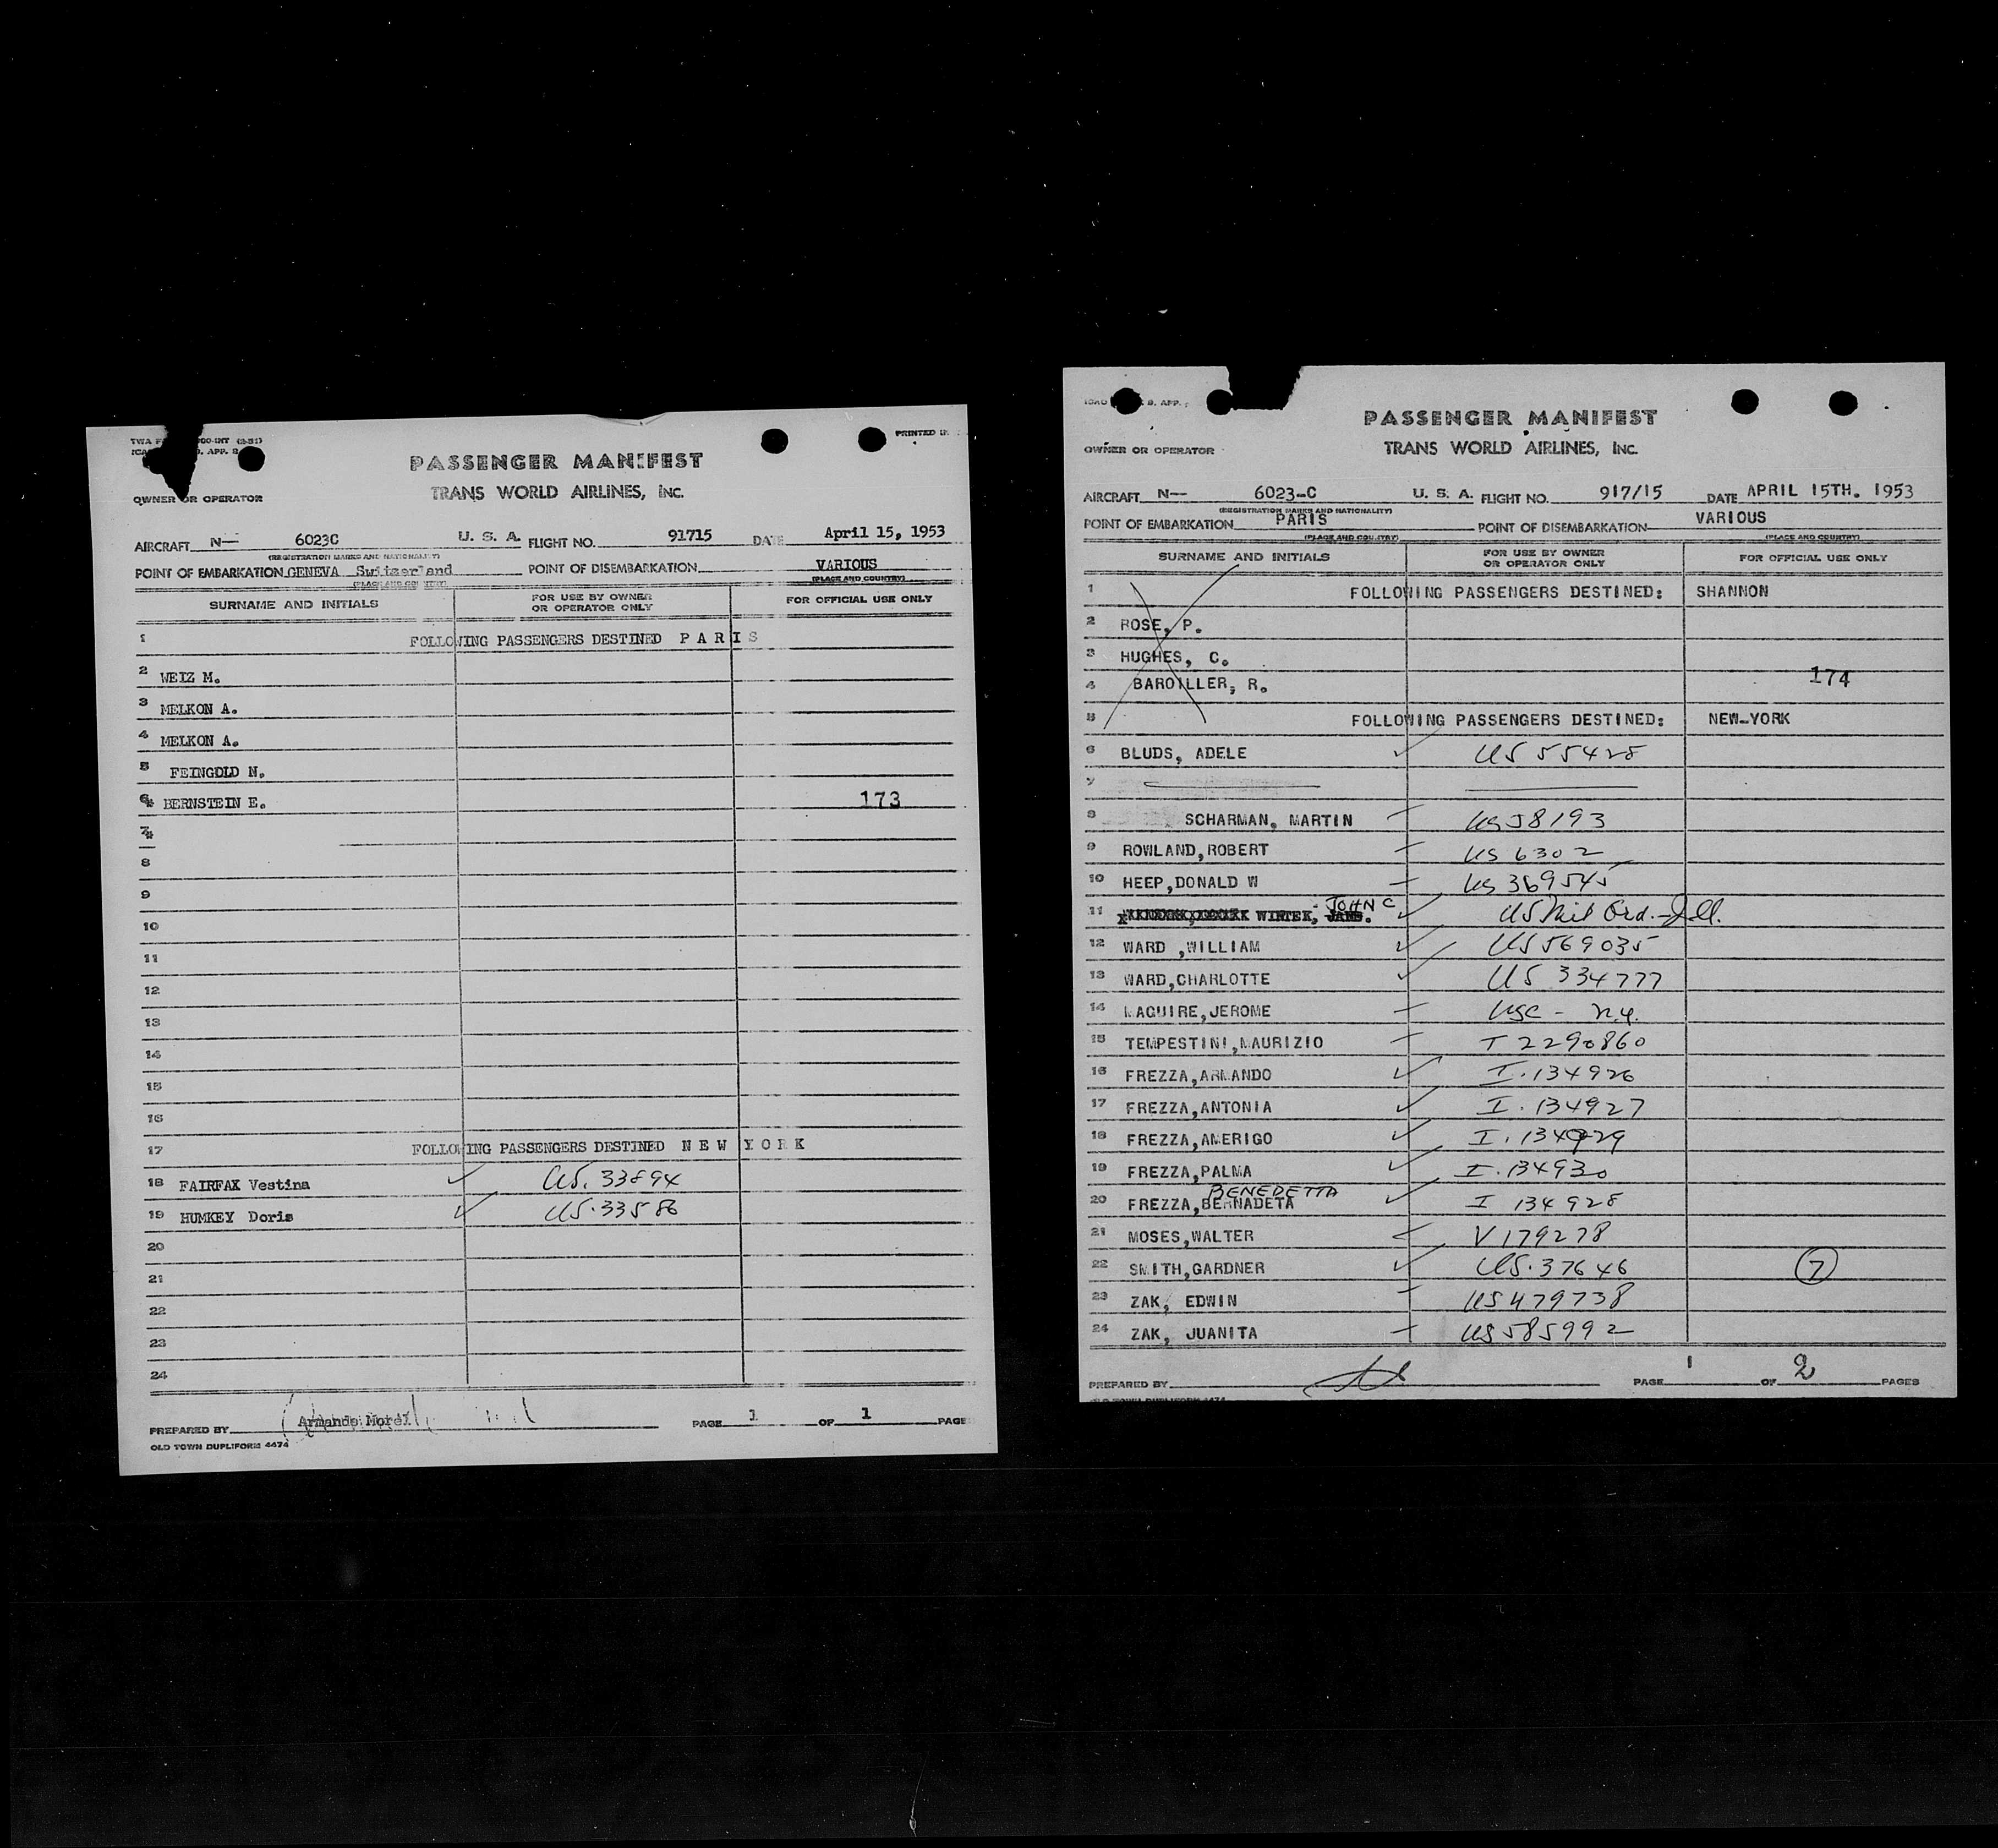 PRINTED IN
PASSENGER MANIFEST
TRANS WORLD AIRLINES, INC.
OWNER OR OPERATOR
AIRCRAFT N— 6023C U. S. A. FLIGHT NO. 91715 DATE April 15, 1953
(REGISTRATION MARKS AND NATIONALITY)
POINT OF EMBARKATION GENEVA Switzerland POINT OF DISEMBARKATION VARIOUS
(PLACE AND COUNTRY) (PLACE AND COUNTRY)
SURNAME AND INITIALS FOR USE BY OWNER OR OPERATOR ONLY FOR OFFICIAL USE ONLY
1 FOLLOWING PASSENGERS DESTINED P A R I S
2 WEIZ M.
3 MELKON A.
4 MELKON A.
5 FEINGOLD N.
6 BERNSTEIN E. 173
7
8
9
10
11
12
13
14
15
16
17 FOLLOWING PASSENGERS DESTINED N E W Y O R K
18 FAIRFAX Vestina ✓ US. 33894
19 HUMKEY Doris ✓ US. 33586
20
21
22
23
24
PREPARED BY Armando Morel PAGE 1 OF 1 PAGE
OLD TOWN DUPLIFORM 4474
PASSENGER MANIFEST
OWNER OR OPERATOR TRANS WORLD AIRLINES, INC.
AIRCRAFT N— 6023-C U. S. A. FLIGHT NO. 917/15 DATE APRIL 15TH. 1953
(REGISTRATION MARKS AND NATIONALITY)
POINT OF EMBARKATION PARIS POINT OF DISEMBARKATION VARIOUS
(PLACE AND COUNTRY) (PLACE AND COUNTRY)
SURNAME AND INITIALS FOR USE BY OWNER OR OPERATOR ONLY FOR OFFICIAL USE ONLY
1 FOLLOWING PASSENGERS DESTINED: SHANNON
2 ROSE, P.
3 HUGHES, C.
4 BAROILLER, R. 174
5 FOLLOWING PASSENGERS DESTINED: NEW-YORK
6 BLUDS, ADELE ✓ US 55428
7
8 SCHARMAN, MARTIN — US 58193
9 ROWLAND,ROBERT — US 6302
10 HEEP,DONALD W — US 369545
11 WINTEK, JOHN C ✓ US Mil Ord.-Ill.
12 WARD ,WILLIAM ✓ US 569035
13 WARD,CHARLOTTE ✓ US 334777
14 MAGUIRE,JEROME — USC - N.Y.
15 TEMPESTINI,MAURIZIO — T 2290860
16 FREZZA,ARMANDO ✓ I. 134926
17 FREZZA,ANTONIA ✓ I. 134927
18 FREZZA,AMERIGO ✓ I. 134929
19 FREZZA,PALMA ✓ I. 134930
BENEDETTA
20 FREZZA,BERNADETA ✓ I 134928
21 MOSES,WALTER V 179278
22 SMITH,GARDNER ✓ US. 37646 7
23 ZAK, EDWIN — US 479738
24 ZAK, JUANITA — US 585992
PREPARED BY PAGE 1 OF 2 PAGES